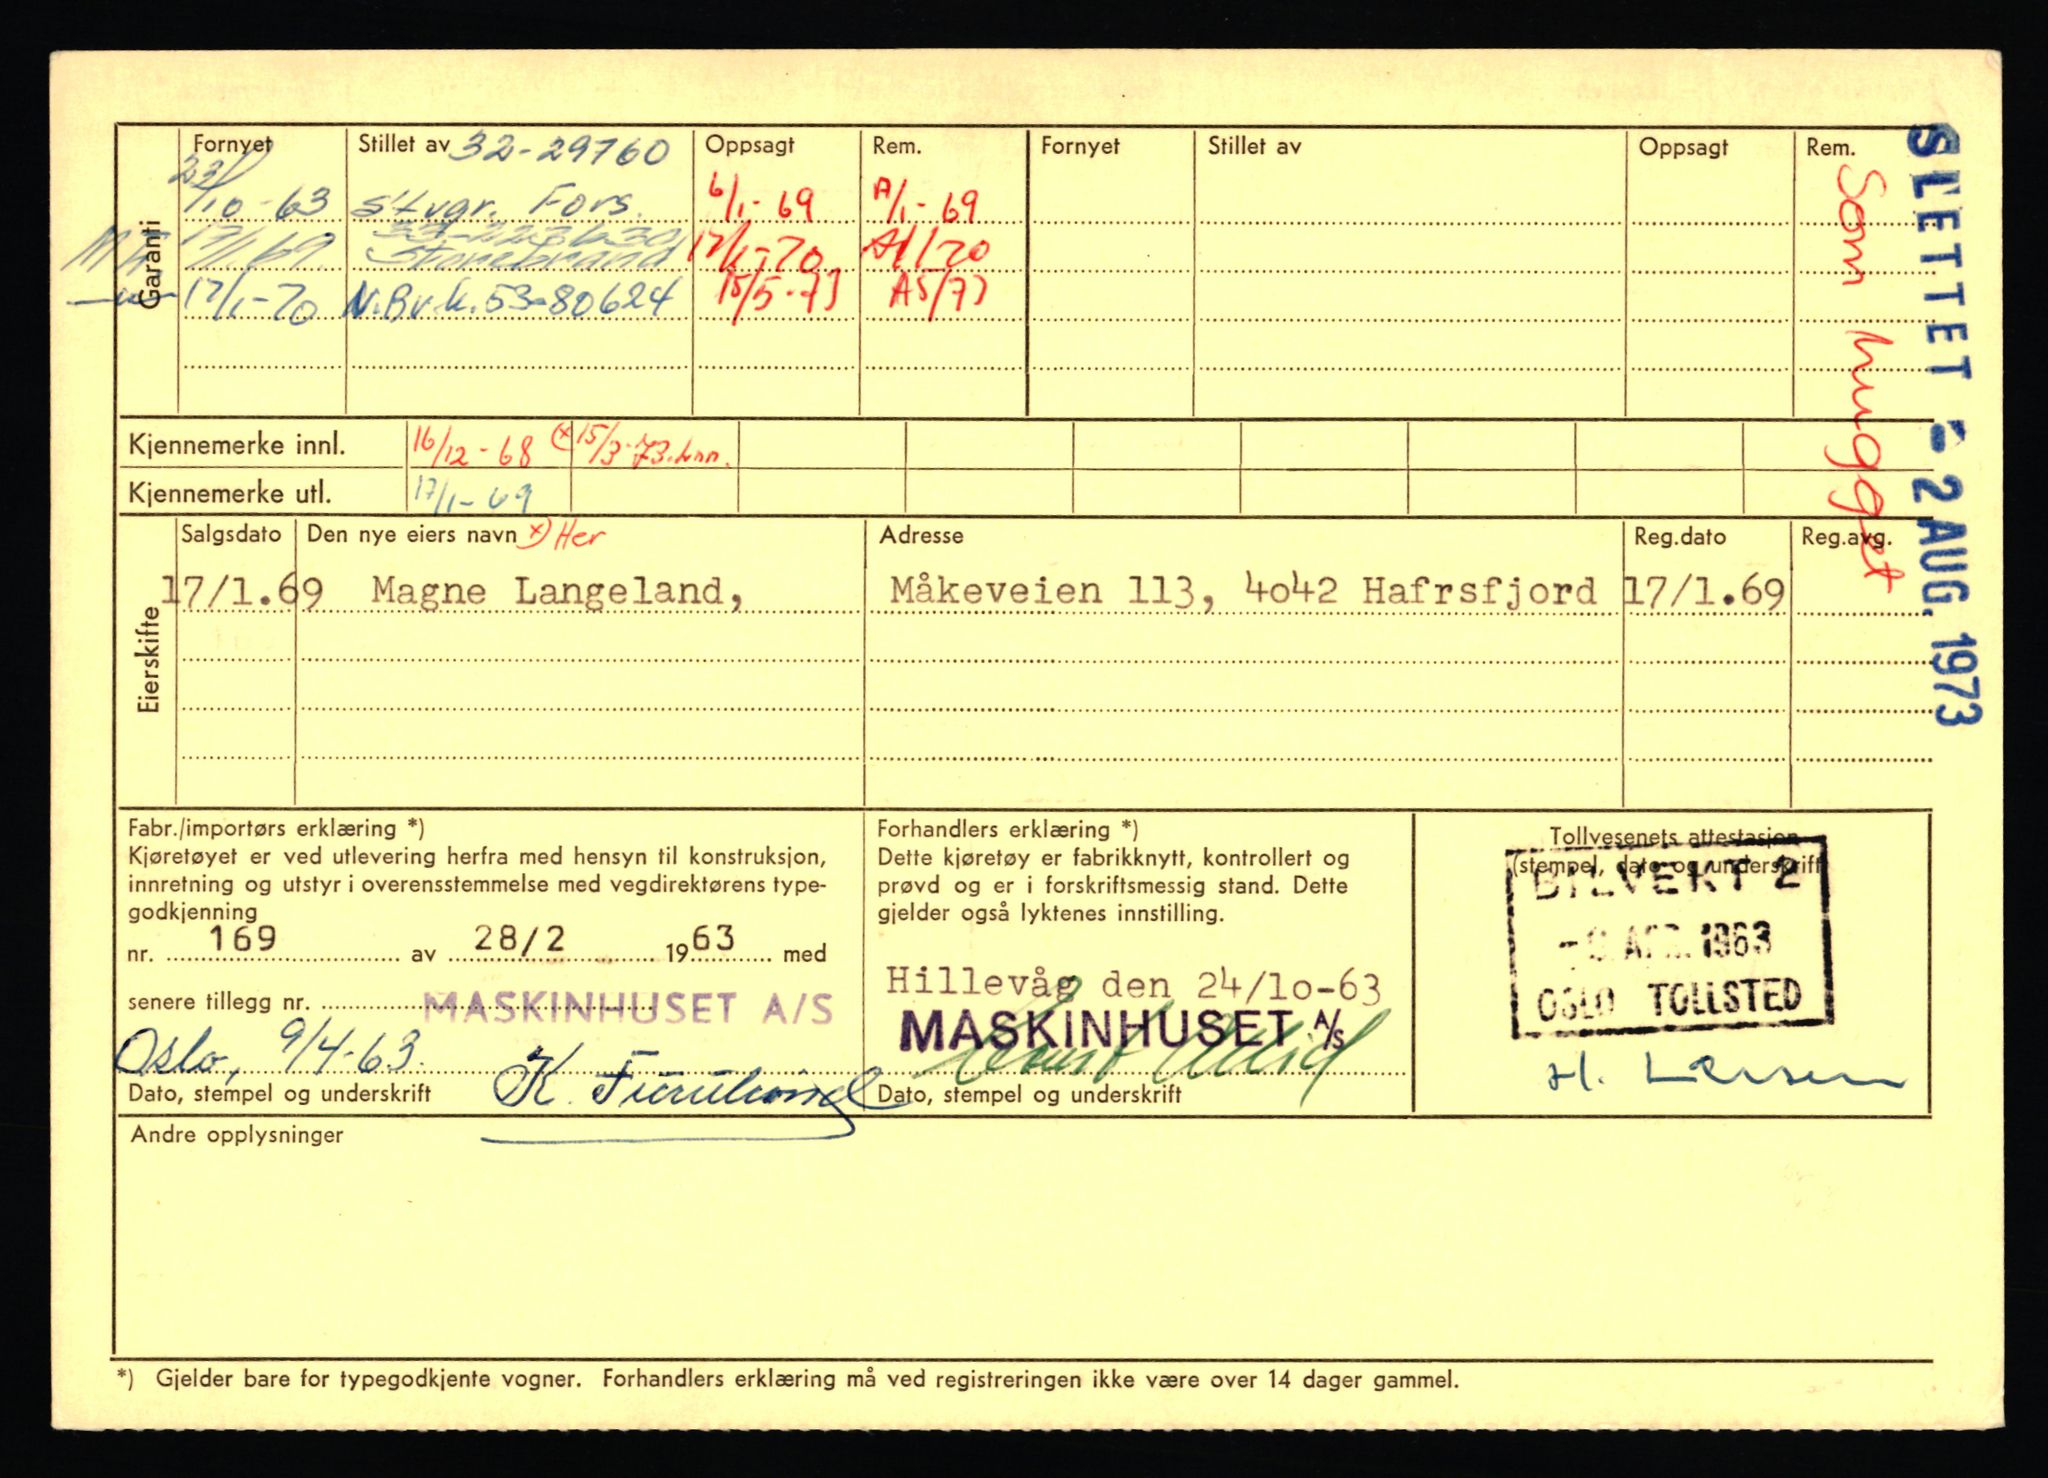 Garanti
Fornyet Stillet av 32-29760 Oppsagt Rem. Fornyet Stillet av Oppsagt Rem.
23/10-63 Stvgr. Fors. 6/1-69 A/1-69
17/1 69. Storebrand 17/1-70 A1/70
17/1-70 N.Bv.k. 53-80624 15/5-73 A5/73
Som hugget
SLETTET - 2 AUG. 1973
Kjennemerke innl. 16/12-68 (x 15/3-73.
Kjennemerke utl. 17/1-69
Eierskifte
Salgsdato Den nye eiers navn x) Her Adresse Reg.dato Reg.avg.
17/1.69 Magne Langeland, Måkeveien 113, 4o42 Hafrsfjord 17/1.69
Fabr./importørs erklæring *)
Kjøretøyet er ved utlevering herfra med hensyn til konstruksjon,
innretning og utstyr i overensstemmelse med vegdirektørens type-
godkjenning
nr. 169 av 28/2 1963 med
senere tillegg nr.
MASKINHUSET A/S
Oslo, 9/4-63.
Dato, stempel og underskrift
Forhandlers erklæring *)
Dette kjøretøy er fabrikknytt, kontrollert og
prøvd og er i forskriftsmessig stand. Dette
gjelder også lyktenes innstilling.
Hillevåg den 24/1o-63
MASKINHUSET A/S
Dato, stempel og underskrift
Tollvesenets attestasjon
(stempel, dato og underskrift
BILVEKT 2
1963
OSLO TOLLSTED
H. Larsen
Andre opplysninger
*) Gjelder bare for typegodkjente vogner. Forhandlers erklæring må ved registreringen ikke være over 14 dager gammel.